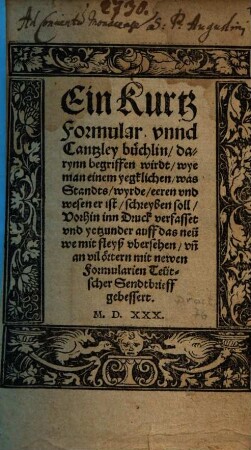 2730.
Ad
Ein Kurtz
Formular vnnd
Cantzley büchlin/ da-
rynn begriffen wirdt/ wye
man einem yegklichen/ was
Standts/ wyrde/ eeren vnd
wesen er ist/ schreyben soll/
Vorhin inn Druck verfasset
vnd yetzunder auff das neü
we mit fleyß vbersehen/ vñ
an vil öttern mit newen
Formularien Teüt-
scher Sendtbrieff
gebessert.
M. D. XXX.